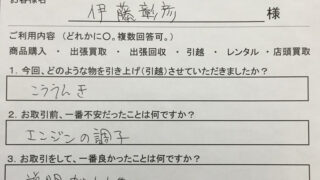 伊藤彰彦 様
ご利用内容（どれかに○。複数回答可。）
商品購入 ・ 出張買取 ・ 出張回収 ・ 引越 ・ レンタル ・ 店頭買取
1. 今回、どのような物を引き上げ（引越）させていただきましたか？
こううんき
2. お取引前、一番不安だったことは何ですか？
エンジンの調子
3. お取引をして、一番良かったことは何ですか？